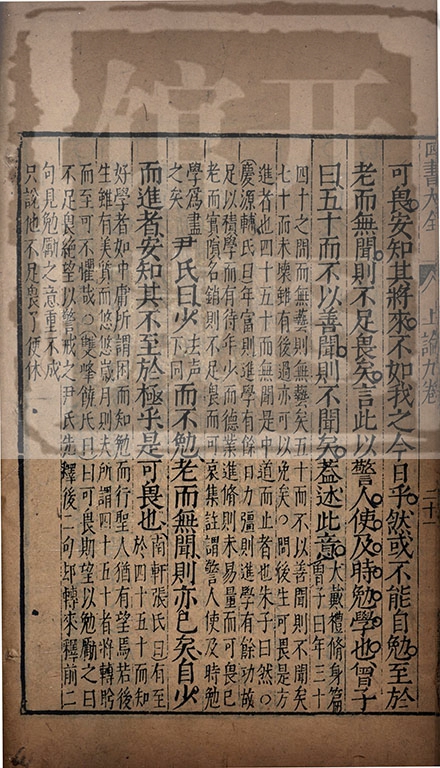 四書大全 上論九卷 二十一
可畏安知其將來不如我之今日乎然或不能自勉至於
老而無聞則不足畏矣言此以警人使及時勉學也曾子
曰五十而不以善聞則不聞矣蓋述此意大戴禮修身篇曾子曰年三十
四十之間而無藝則無藝矣五十而不以善聞則不聞矣
七十而未壞雖有後過亦可以免矣○問後生可畏是方
進者也四十五十而無聞是中道而止者也朱子曰然○
慶源輔氏曰年富則進學有餘日力彊則進學有餘功故
足以積學而有待年少而德業進修則未易量而可畏已
老而實隳名銷則不足畏而可哀集註謂警人使及時勉
學為盡之矣 尹氏曰少去聲下同而不勉老而無聞則亦已矣自少
而進者安知其不至於極乎是可畏也南軒張氏曰有至於四十五十而知
好學者如中庸所謂困而知勉而行聖人猶有望焉若後
生雖有美質而悠悠歲月則夫所謂四十五十者將轉盻
而至可不懼哉○雙峰饒氏曰曰可畏期望以勉勵之曰
不足畏絕望以警戒之尹氏先釋後二句却轉來釋前二
句見勉勵之意重不成
只說他不足畏了便休